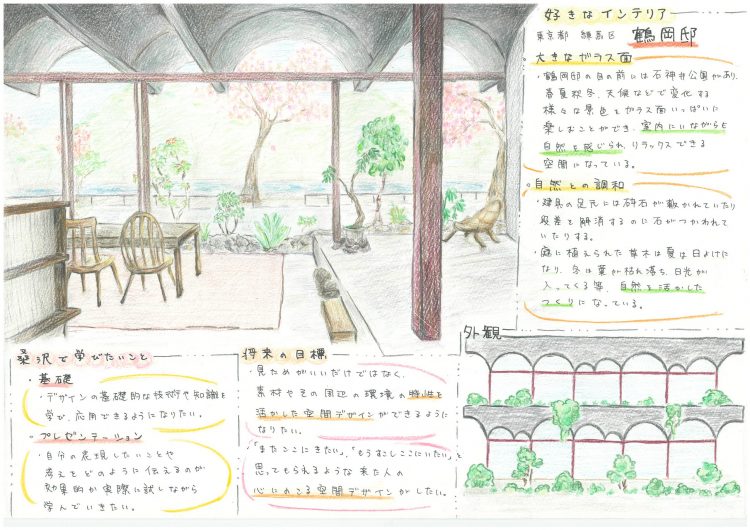 好きなインテリア
東京都 練馬区 鶴岡邸
・大きなガラス面
・鶴岡邸の目の前には石神井公園があり、
春夏秋冬、天候などで変化する
様々な景色をガラス面いっぱいに
楽しむことができ、室内にいながらも
自然を感じられ、リラックスできる
空間になっている。
・自然との調和
・建具の足元には砕石が敷かれていたり
段差を解消するのに石がつかわれて
いたりする。
・庭に植えられた草木は夏は日よけに
なり、冬は葉が枯れ落ち、日光が
入ってくる等、自然を活かした
つくりになっている。
外観
桑沢で学びたいこと
・基礎
・デザインの基礎的な技術や知識を
学び、応用できるようになりたい。
・プレゼンテーション
・自分の表現したいことや
考えをどのように伝えるのが
効果的か実際に試しながら
学んでいきたい。
将来の目標
・見ためがいいだけではなく、
素材やその周辺の環境の特性を
活かした空間デザインができるように
なりたい。
・「またここにきたい」、「もうすこしここにいたい」と
思ってもらえるような来た人の
心にのこる空間デザインがしたい。